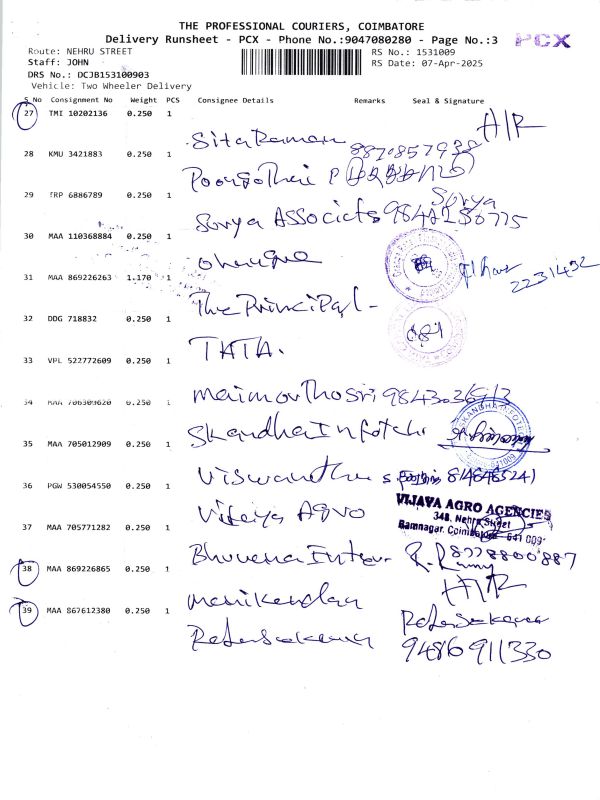 THE PROFESSIONAL COURIERS, COIMBATORE
Delivery Runsheet - PCX - Phone No.:9047080280 - Page No.:3
PCX
Route: NEHRU STREET
RS No.: 1531009
Staff: JOHN
RS Date: 07-Apr-2025
DRS No.: DCJB153100903
Vehicle: Two Wheeler Delivery
S.No Consignment No Weight PCS Consignee Details Remarks Seal & Signature
27 TMI 10202136 0.250 1
A/R
Sitaraman
28 KMU 3421883 0.250 1
8870857938
29 FRP 6886789 0.250 1
Surya
Surya Associets
30 MAA 110368884 0.250 1
31 MAA 869226263 1.170 1
2231432
The Principal
32 DDG 718832 0.250 1
TATA.
33 VPL 522772609 0.250 1
34 MAA 706309620 0.250 1
Skandha Infotch
SKANDHA INFOTECH
35 MAA 705012909 0.250 1
36 PGW 530054550 0.250 1
VIJAYA AGRO AGENCIES
348, Nehru Street
Ramnagar, Coimbatore - 641 009
37 MAA 705771282 0.250 1
8778800887
38 MAA 869226865 0.250 1
H/R
Manikandan
39 MAA 867612380 0.250 1
9486911330